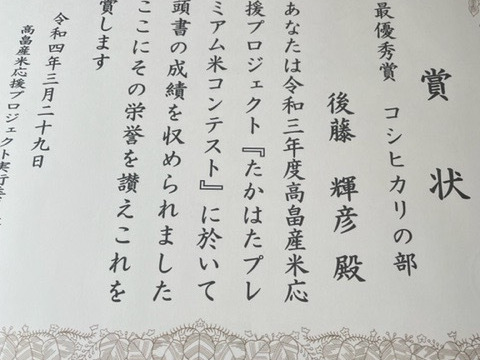 賞状
最優秀賞 コシヒカリの部
後藤 輝彦 殿
あなたは令和三年度高畠産米応
援プロジェクト『たかはたプレ
ミアム米コンテスト』に於いて
頭書の成績を収められました
ここにその栄誉を讃えこれを
賞します
令和四年三月二十九日
高畠産米応援プロジェクト実行